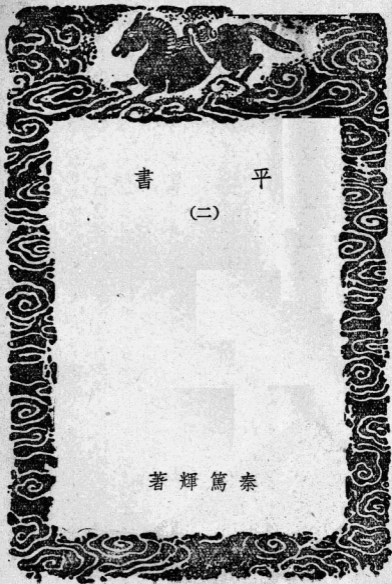 平書
(二)
秦篤輝著